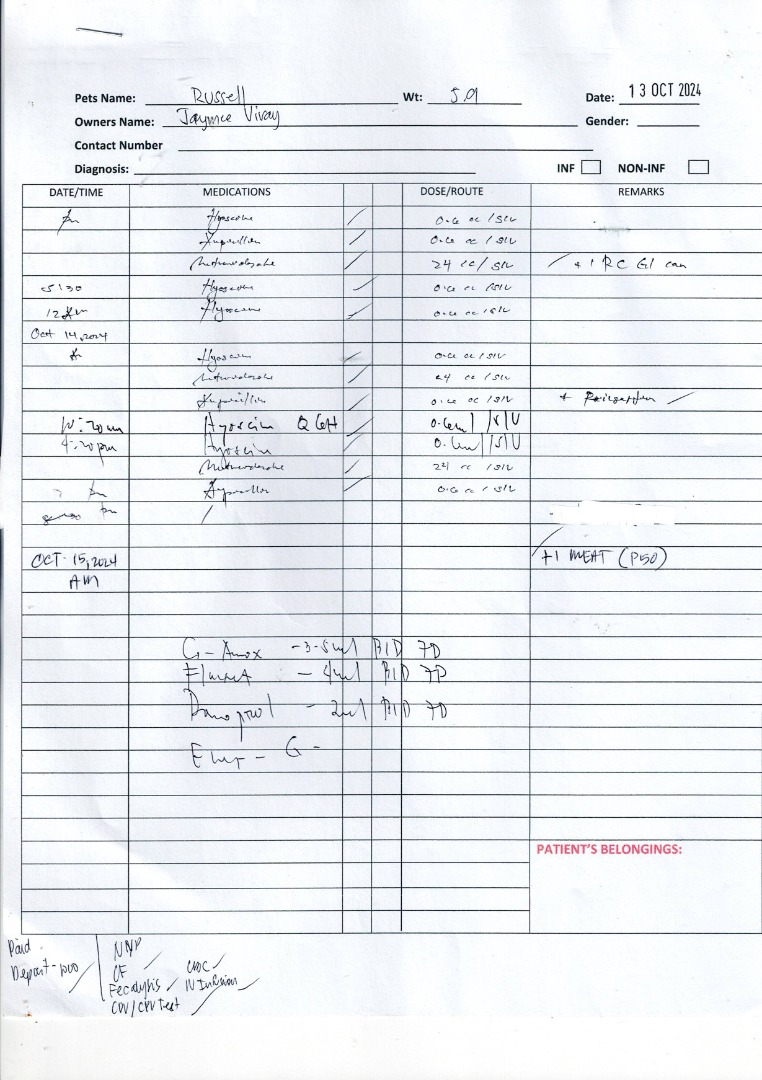 Pets Name: Russell Wt: 5.9 Date: 13 OCT 2024
Owners Name: Jaymee Vivay Gender:
Contact Number
Diagnosis: INF NON-INF
DATE/TIME MEDICATIONS DOSE/ROUTE REMARKS
Hyoscine 0.6 cc / SIV
Ampicillin 0.6 cc / SIV
Metronidazole 24 cc / SIV + 1 RC GI can
5:30 Hyoscine 0.6 cc / SIV
12 AM Hyoscine 0.6 cc / SIV
Oct 14, 2024
Hyoscine 0.6 cc / SIV
Metronidazole 24 cc / SIV
Ampicillin 0.6 cc / SIV +
10:20 am Hyoscine Q6H 0.6ml / SIV
4:20 pm Hyoscine 0.6ml / SIV
Metronidazole 24 cc / SIV
Ampicillin 0.6 cc / SIV
OCT 15, 2024 +1 MEAT (P50)
AM
G-Amox - 3.5ml BID 7D
- 4ml BID 7D
- 2ml BID 7D
PATIENT'S BELONGINGS:
Paid
Deposit - 1000
CF
CBC
Fecalysis
IV Infusion
CDV/CPV Test